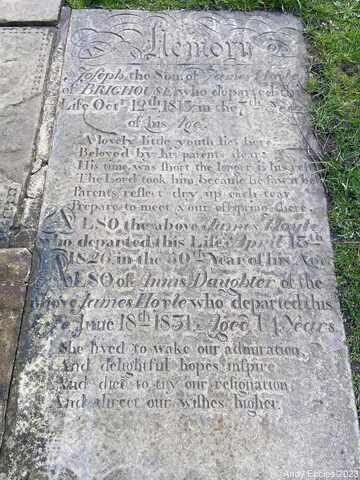 Memory
Joseph, the Son of James Hoyle
of BRIGHOUSE, who departed this
Life Octr. 12th 1815, in the 7th Year
of his Age.
A lovely little youth lies here
Beloved by his parents dear
His time was short the longer is his rest
The Lord took him because he saw it best
Parents reflect dry up each tear
Prepare to meet your offspring there.
ALSO the above James Hoyle
who departed this Life April 15th
1826, in the 50th Year of his Age
ALSO of Ann Daughter of the
above James Hoyle who departed this
Life June 18th 1831, Aged 14 Years
She lived to wake our admiration,
And delightful hopes inspire
And died to try our resignation
And direct our wishes higher.
Andy Eccles 2023